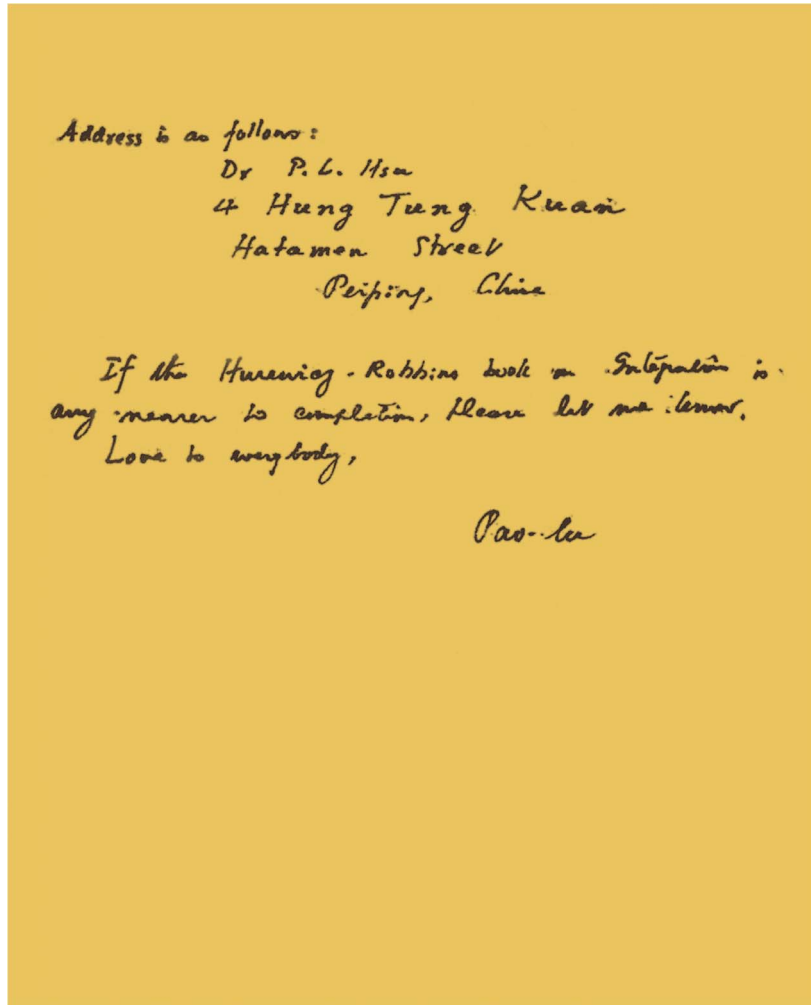 Address is as follows:
Dr P. L. Hsu
4 Hung Tung Kuan
Hatamen Street
Peiping, China
If the Hurewicz-Robbins book on Integration is
any nearer to completion, please let me know.
Love to everybody,
Pao-lu